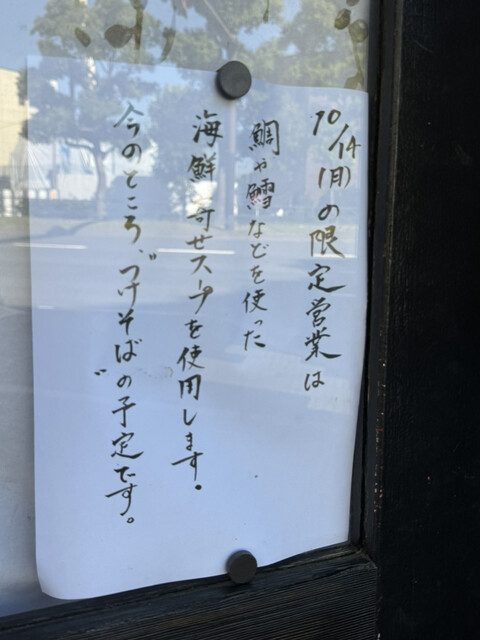 10/14(月)の限定営業は
鯛や鱈などを使った
海鮮寄せスープを使用します。
今のところ、"つけそば"の予定です。